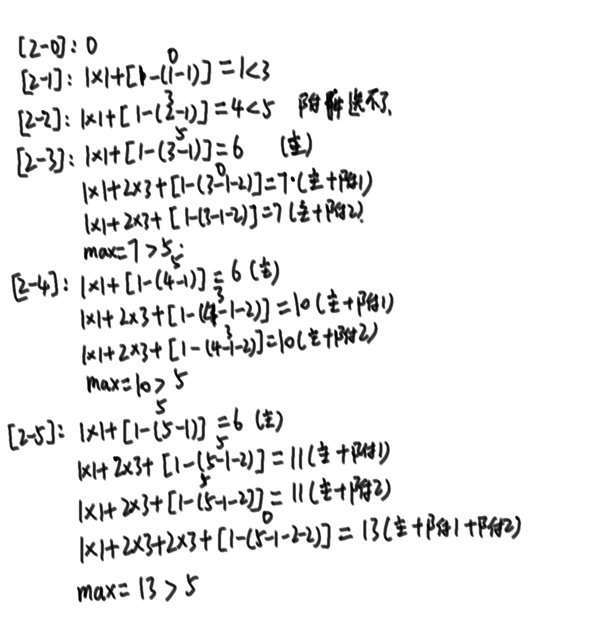 [2-0]: 0
0
[2-1]: 1×1+[1-(1-1)]=1<3
3
[2-2]: 1×1+[1-(2-1)]=4<5 附件送不了
5
[2-3]: 1×1+[1-(3-1)]=6 (主)
0
1×1+2×3+[1-(3-1-2)]=7 (主+附1)
1×1+2×3+[1-(3-1-2)]=7 (主+附2)
max=7>5
5
[2-4]: 1×1+[1-(4-1)]=6 (主)
3
1×1+2×3+[1-(4-1-2)]=10 (主+附1)
3
1×1+2×3+[1-(4-1-2)]=10 (主+附2)
max=10>5
5
[2-5]: 1×1+[1-(5-1)]=6 (主)
5
1×1+2×3+[1-(5-1-2)]=11 (主+附1)
5
1×1+2×3+[1-(5-1-2)]=11 (主+附2)
0
1×1+2×3+2×3+[1-(5-1-2-2)]=13 (主+附1+附2)
max=13>5